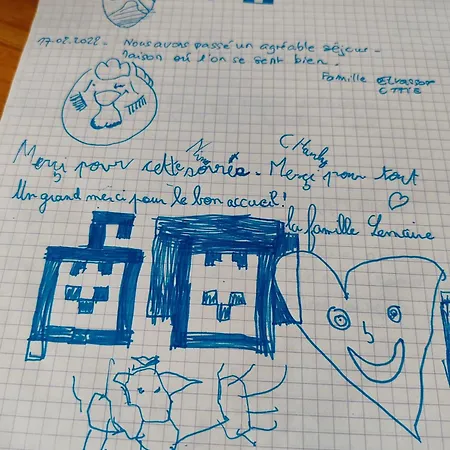 17.02.2022. Nous avons passé un agréable séjour.
Maison où l'on se sent bien.
Famille
Nina Charly
Merçi pour cette soirée. Merçi pour tout
Un grand merci pour le bon accueil!
la famille Lemaire